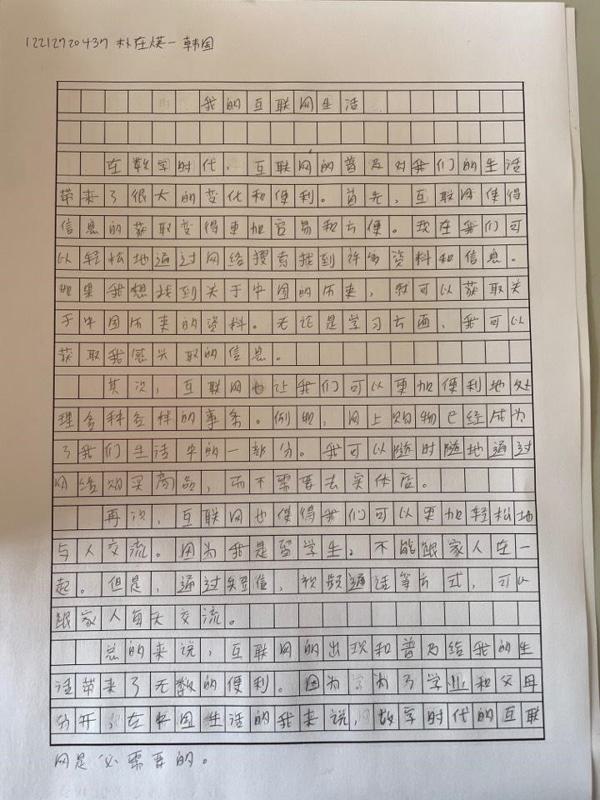 12212720437 朴在煐一韩国
我的互联网生活
在数字时代，互联网的普及对我们的生活
带来了很大的变化和便利。首先，互联网使得
信息的获取变得更加容易和方便。现在我们可
以轻松地通过网络搜索找到许多资料和信息。
如果我想找到关于中国的历来，就可以获取关
于中国历来的资料。无论是学习方面，我可以
获取我感兴取的信息。
其次，互联网也让我们可以更加便利地处
理各种各样的事务。例如，网上购物已经成为
了我们生活中的一部分。我可以随时随地通过
网络购买商品，而不需要去实体店。
再次，互联网也使得我们可以更加轻松地
与人交流。因为我是留学生，不能跟家人在一
起。但是，通过短信，视频通话等方式，可以
跟家人每天交流。
总的来说，互联网的出现和普及给我的生
活带来了无数的便利。因为为了学业和父母
分开，在中国生活的我来说，数字时代的互联
网是必需要的。